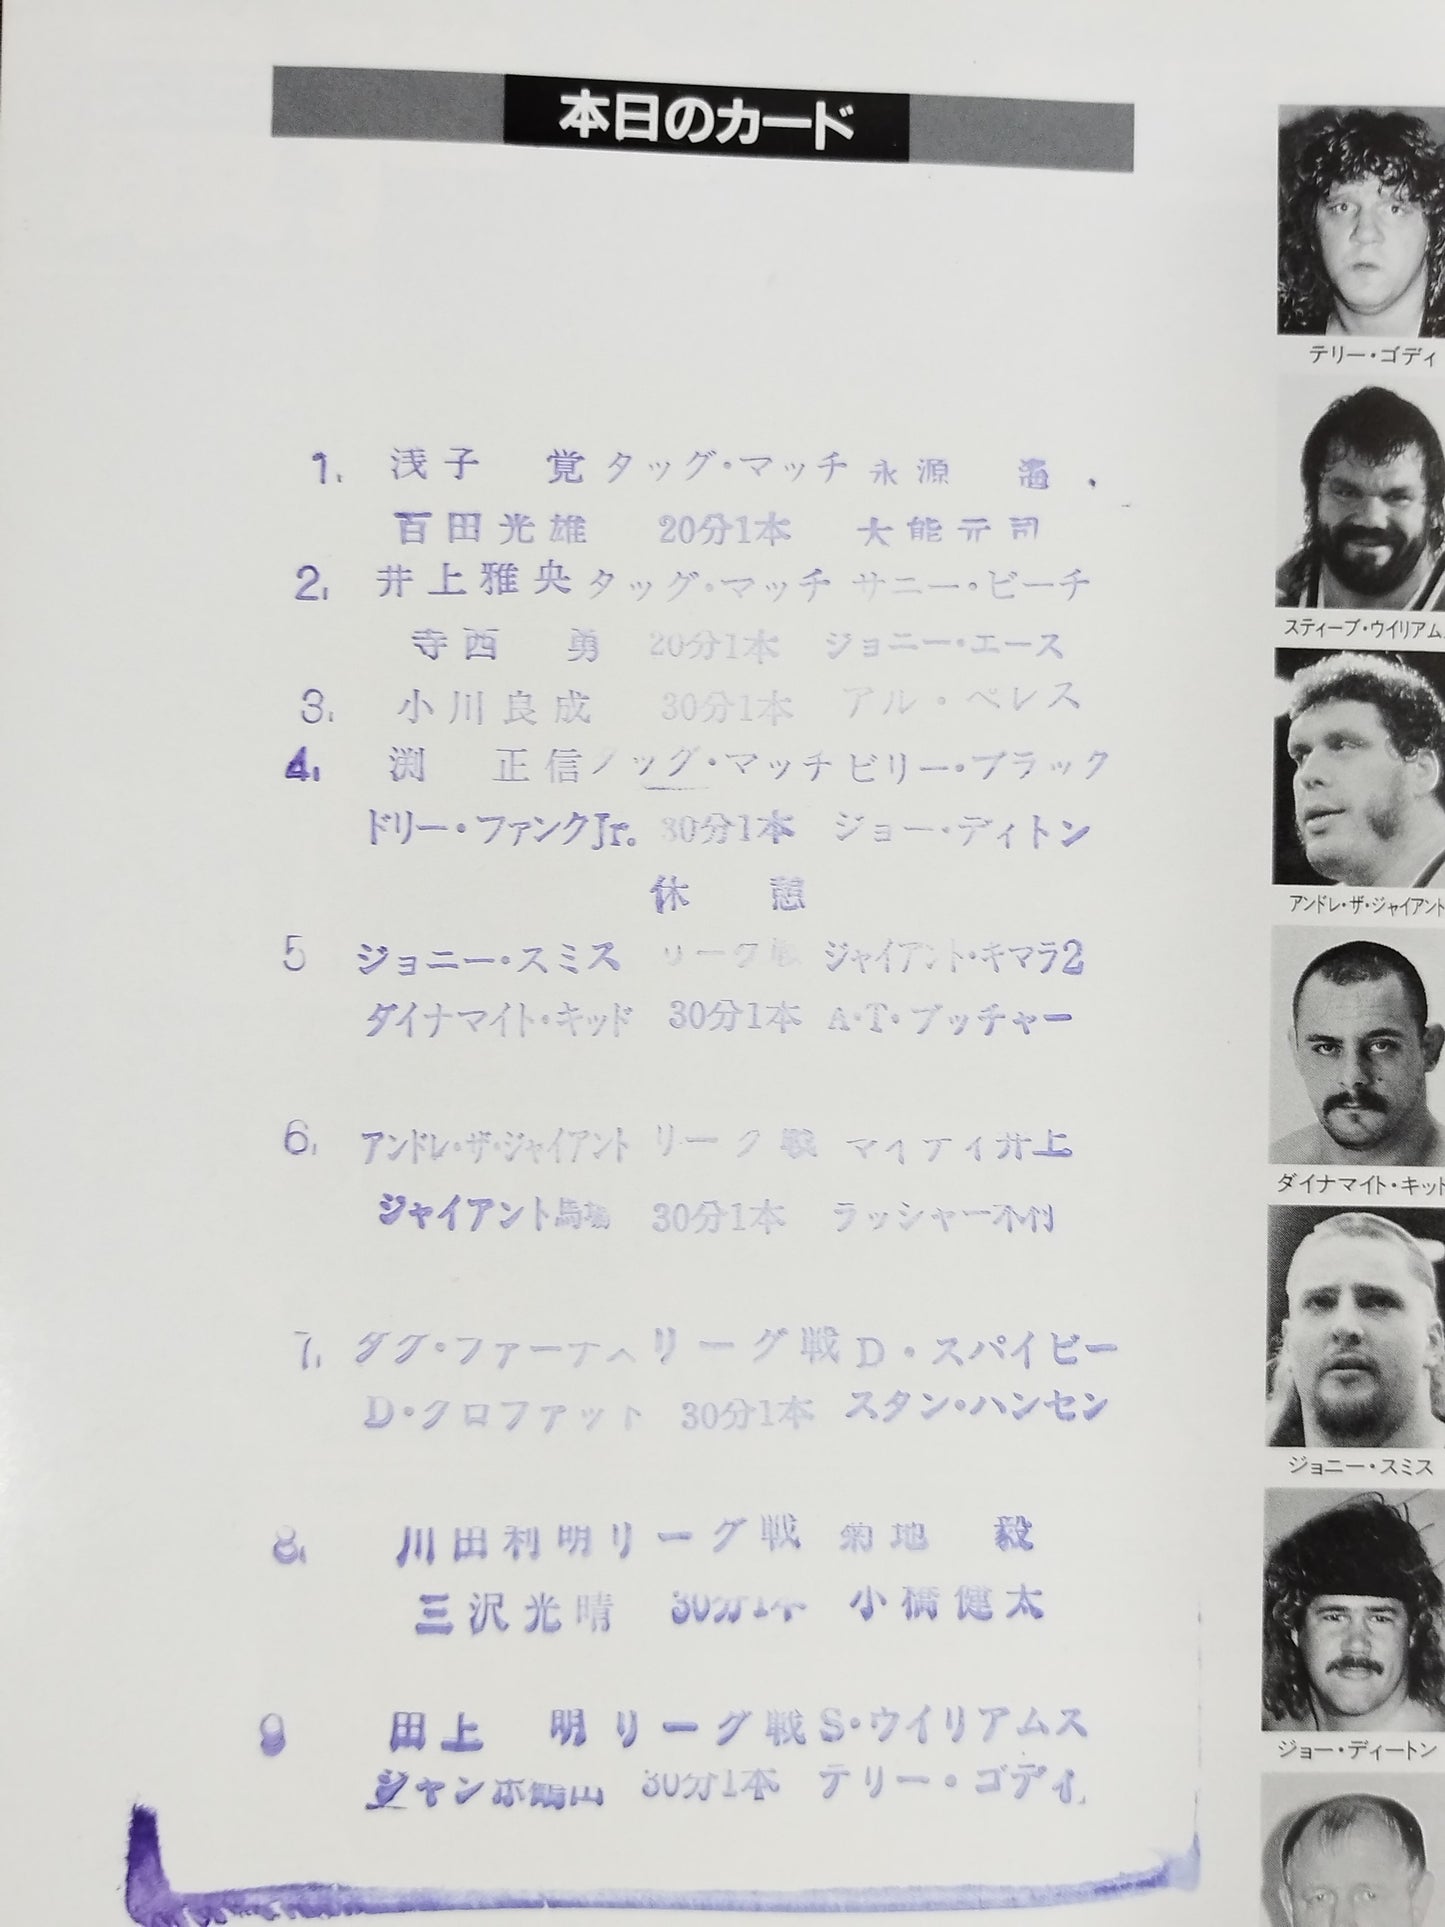 本日のカード
1. 浅子 覚 タッグ・マッチ 永源 遙
百田光雄 20分1本 大熊元司
2. 井上雅央 タッグ・マッチ サニー・ビーチ
寺西 勇 20分1本 ジョニー・エース
3. 小川良成 30分1本 アル・ペレス
4. 渕 正信 タッグ・マッチ ビリー・ブラック
ドリー・ファンクJr. 30分1本 ジョー・ディトン
休 憩
5 ジョニー・スミス リーグ戦 ジャイアント・キマラ2
ダイナマイト・キッド 30分1本 A・T・ブッチャー
6. アンドレ・ザ・ジャイアント リーグ戦 マイティ井上
ジャイアント馬場 30分1本 ラッシャー木村
7. ダグ・ファーナス リーグ戦 D・スパイビー
D・クロファット 30分1本 スタン・ハンセン
8. 川田利明 リーグ戦 菊地 毅
三沢光晴 30分1本 小橋健太
9 田上 明 リーグ戦 S・ウイリアムス
ジャンボ鶴田 30分1本 テリー・ゴディ
テリー・ゴディ
スティーブ・ウイリアム
アンドレ・ザ・ジャイアント
ダイナマイト・キット
ジョニー・スミス
ジョー・ディートン